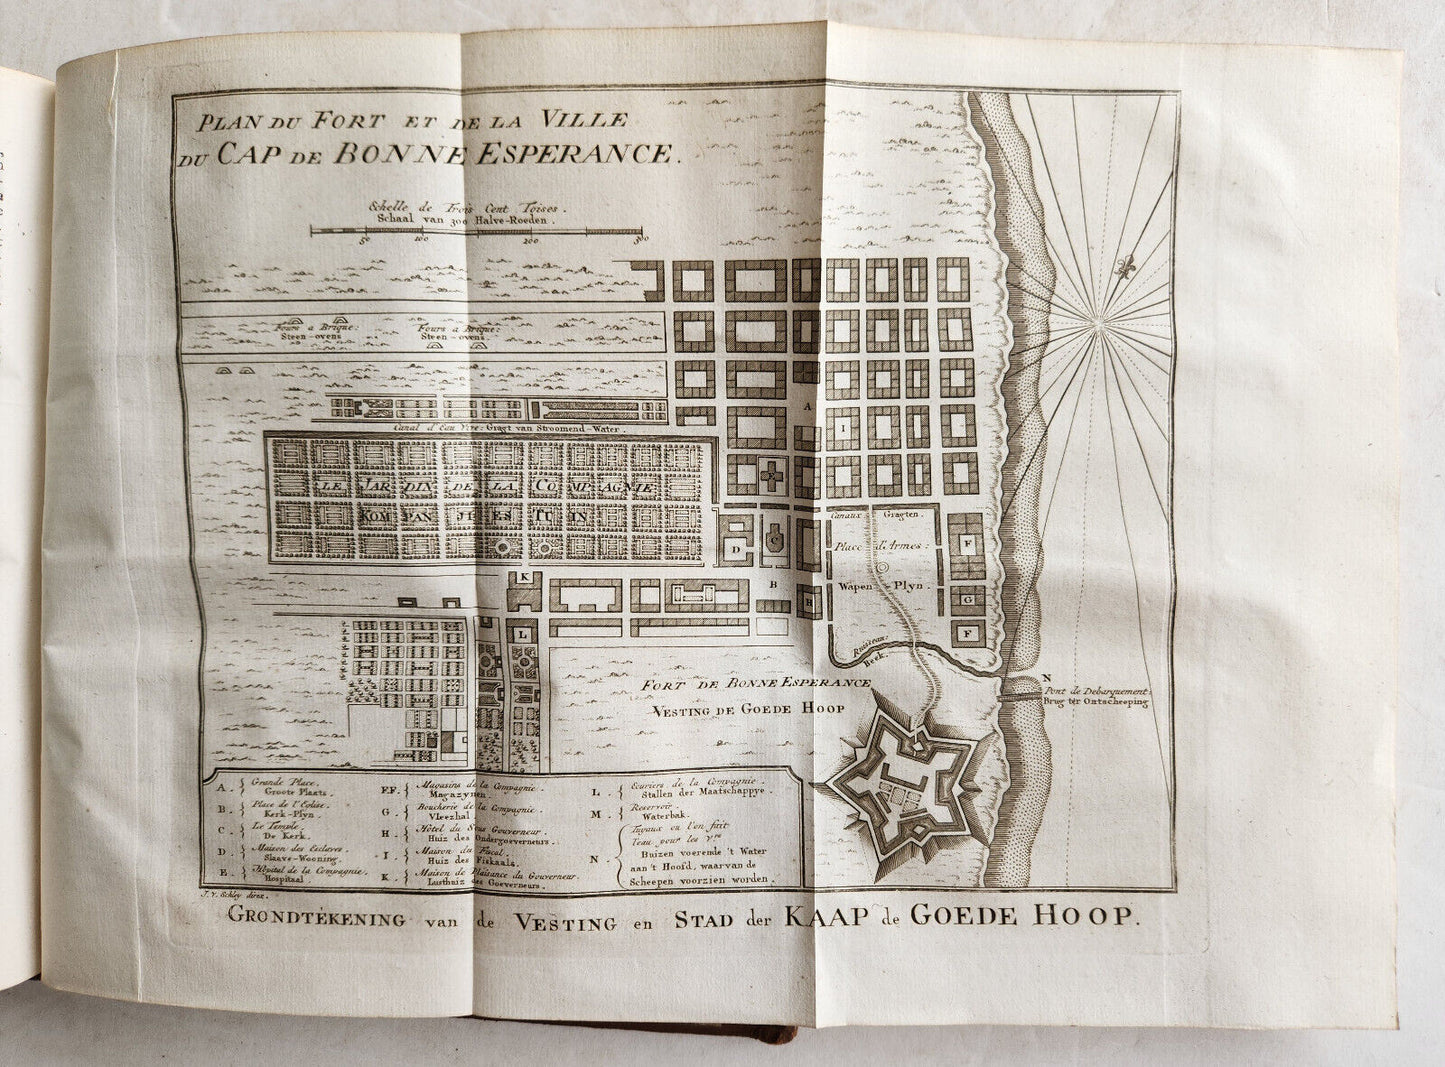 PLAN DU FORT ET DE LA VILLE
DU CAP DE BONNE ESPERANCE.
Echelle de Trois Cent Toises.
Schaal van 300 Halve-Roeden.
50 100 200 300
Fours a Brique: Fours a Brique:
Steen-ovens Steen-ovens.
Canal d'Eau Vive: Gragt van Stroomend-Water.
A
I
E
LE JARDIN DE LA COMPAGNIE
KOMPANJIES TUIN
Canaux Gragten.
D
C
Place d'Armes:
F
K
B
Wapen-Plyn.
H
G
L
F
Ruisseau:
Beek.
N
FORT DE BONNE ESPERANCE
VESTING DE GOEDE HOOP
Pont de Debarquement:
Brug ter Ontscheeping
A. Grande Place.
Groote Plaats.
B. Place de l'Eglise.
Kerk-Plyn.
C. Le Temple.
De Kerk.
D. Maison des Esclaves.
Slaave-Wooning.
E. Hôpital de la Compagnie.
Hospitaal
FF. Magasins de la Compagnie.
Magazynen.
G. Boucherie de la Compagnie.
Vleezhal
H. Hôtel du Sous Gouverneur.
Huiz des Ondergoeverneurs.
I. Maison du Fiscal.
Huiz des Fiskaals.
K. Maison de Plaisance du Gouverneur.
Lusthuiz des Goeverneurs.
L. Ecuries de la Compagnie.
Stallen der Maatschappye.
M. Reservoir.
Waterbak.
N. Tuyaux ou l'on fait
l'eau pour les Vres
Buizen voerende 't Water
aan 't Hoofd, waarvan de
Scheepen voorzien worden.
J. V. Schley direx.
GRONDTÉKENING van de VESTING en STAD der KAAP de GOEDE HOOP.